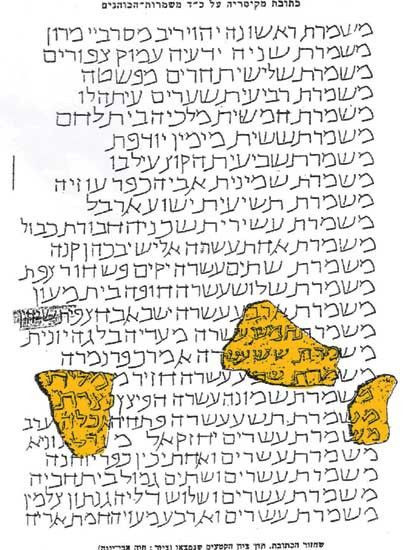 כתובת מקיסריה על כ"ד משמרות-הכוהנים
משמרת ראשונה יהויריב מסרביי מרון
משמרת שניה ידעיה עמוק צפורים
משמרת שלישית חרים מפשטה
משמרת רביעית שערים עיתהלו
משמרת חמשית מלכיה בית לחם
משמרת ששית מימין יודפת
משמרת שביעית הקוץ עילבו
משמרת שמינית אביה כפר עוזיה
משמרת תשיעית ישוע ארבל
משמרת עשירית שכניה חבורת כבול
משמרת אחת עשרה אלישיב כהן קנה
משמרת שתים עשרה יקים פשחור צפת
משמרת שלוש עשרה חופה בית מעון
משמרת ארבע עשרה ישבאב חצפית
משמרת חמש עשרה מעדיה בלגה יונית
משמרת שש עשרה אמר כפר נמרה
משמרת שבע עשרה חזיר ממליח
משמרת שמונה עשרה הפיצץ נצרת
משמרת תשע עשרה פתחיה אכלה ערב
משמרת עשרים יחזקאל מגדל נוניא
משמרת עשרים ואחת יכין כפר יוחנה
משמרת עשרים ושתים גמול בית חביה
משמרת עשרים ושלוש דליה גנתון צלמין
משמרת עשרים וארבע מעזיה חמת אריח
שחזור הכתובת. תוך ציון הקטעים שנמצאו חיה אבי-יונה)